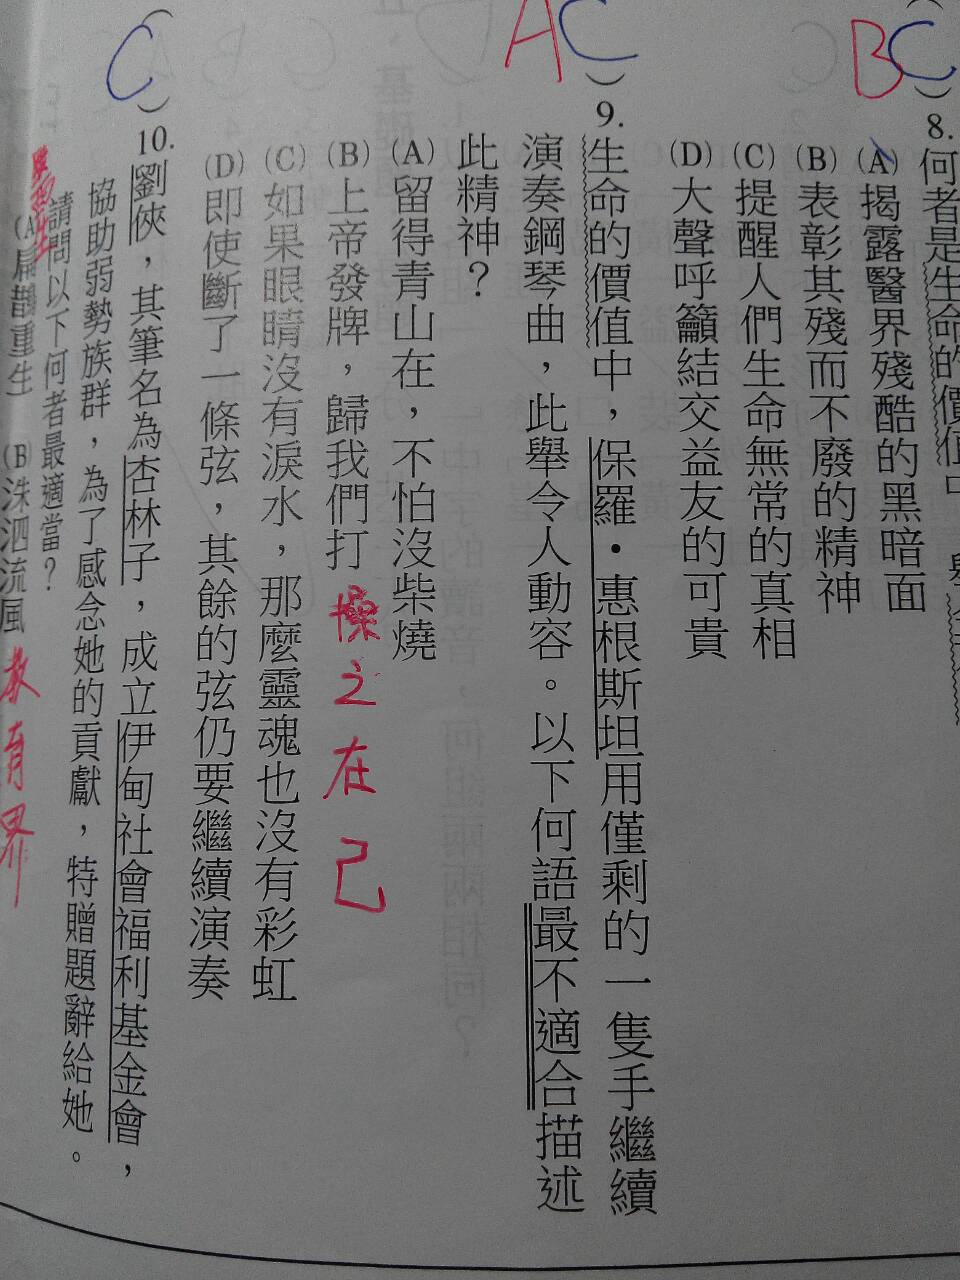 BC
) 8. 何者是生命的價值中
(A) 揭露醫界殘酷的黑暗面
(B) 表彰其殘而不廢的精神
(C) 提醒人們生命無常的真相
(D) 大聲呼籲結交益友的可貴
AC
) 9. 生命的價值中，保羅・惠根斯坦用僅剩的一隻手繼續
演奏鋼琴曲，此舉令人動容。以下何語最不適合描述
此精神？
(A) 留得青山在，不怕沒柴燒
(B) 上帝發牌，歸我們打 操之在己
(C) 如果眼睛沒有淚水，那麼靈魂也沒有彩虹
(D) 即使斷了一條弦，其餘的弦仍要繼續演奏
C
) 10. 劉俠，其筆名為杏林子，成立伊甸社會福利基金會，
協助弱勢族群，為了感念她的貢獻，特贈題辭給她。
請問以下何者最適當？
(A) 扁鵲重生 (B) 洙泗流風 教育界